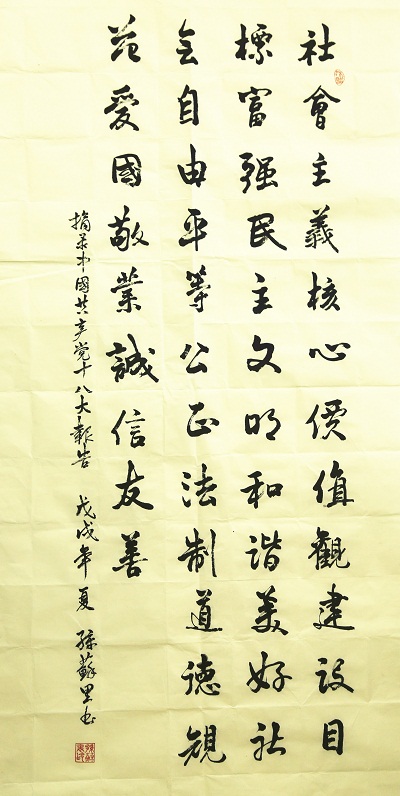 社會主義核心價值觀建設目
標富强民主文明和谐美好社
会自由平等公正法制道德規
范愛國敬業誠信友善
摘录中國共产党十八大報告 戊戌年夏 孫蘇里书